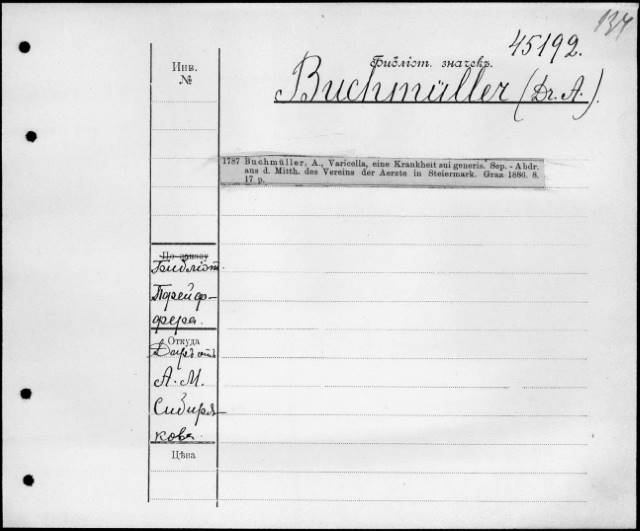 134
45192.
Инв.
№
Библіот. значекъ.
Buchmüller (Dr. A.).
1787 Buchmüller, A., Varicella, eine Krankheit sui generis. Sep.-Abdr.
aus d. Mitth. des Vereins der Aerzte in Steiermark. Graz 1886. 8.
17 p.
Библіот.
Пфейф-
фера.
Откуда
Даръ отъ
А. М.
Сибиря-
кова.
Цѣна